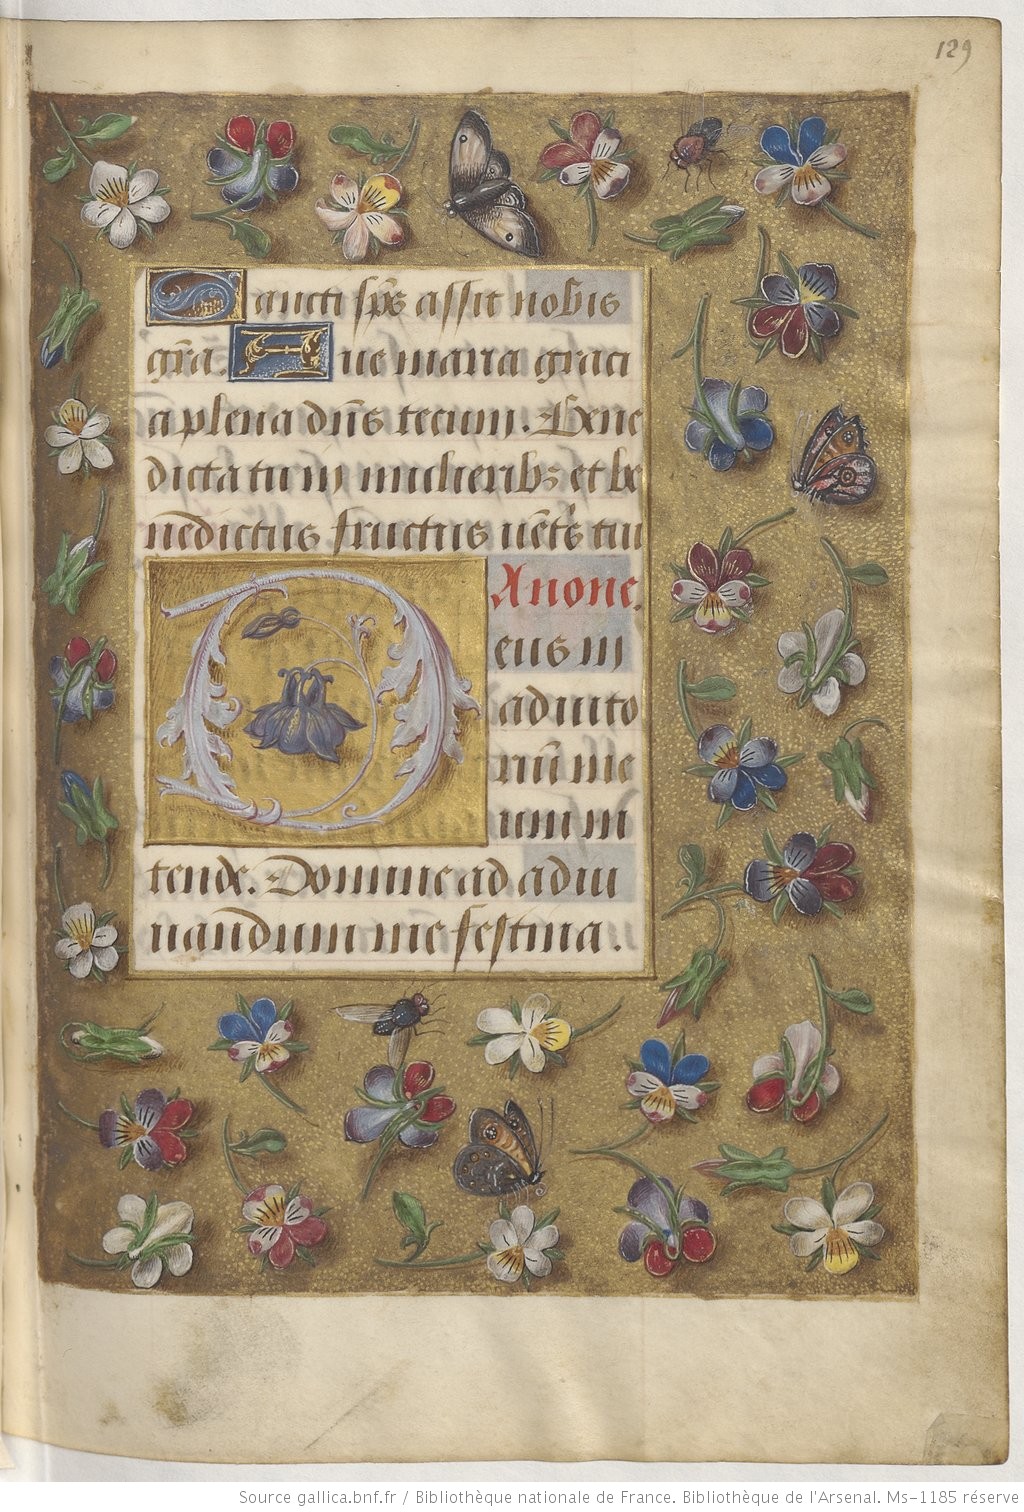 129
Sancti sp̃s assit nobis
gr̃a. Aue maria graci
a plena dñs tecum. Bene
dicta tu in mulieribꝫ et be
nedictus fructus uẽtʳs tui
A none.
Deus in
adiuto
riũ me
um in
tende. Domine ad adiu
uandum me festina.
Source gallica.bnf.fr / Bibliothèque nationale de France. Bibliothèque de l'Arsenal. Ms-1185 réserve